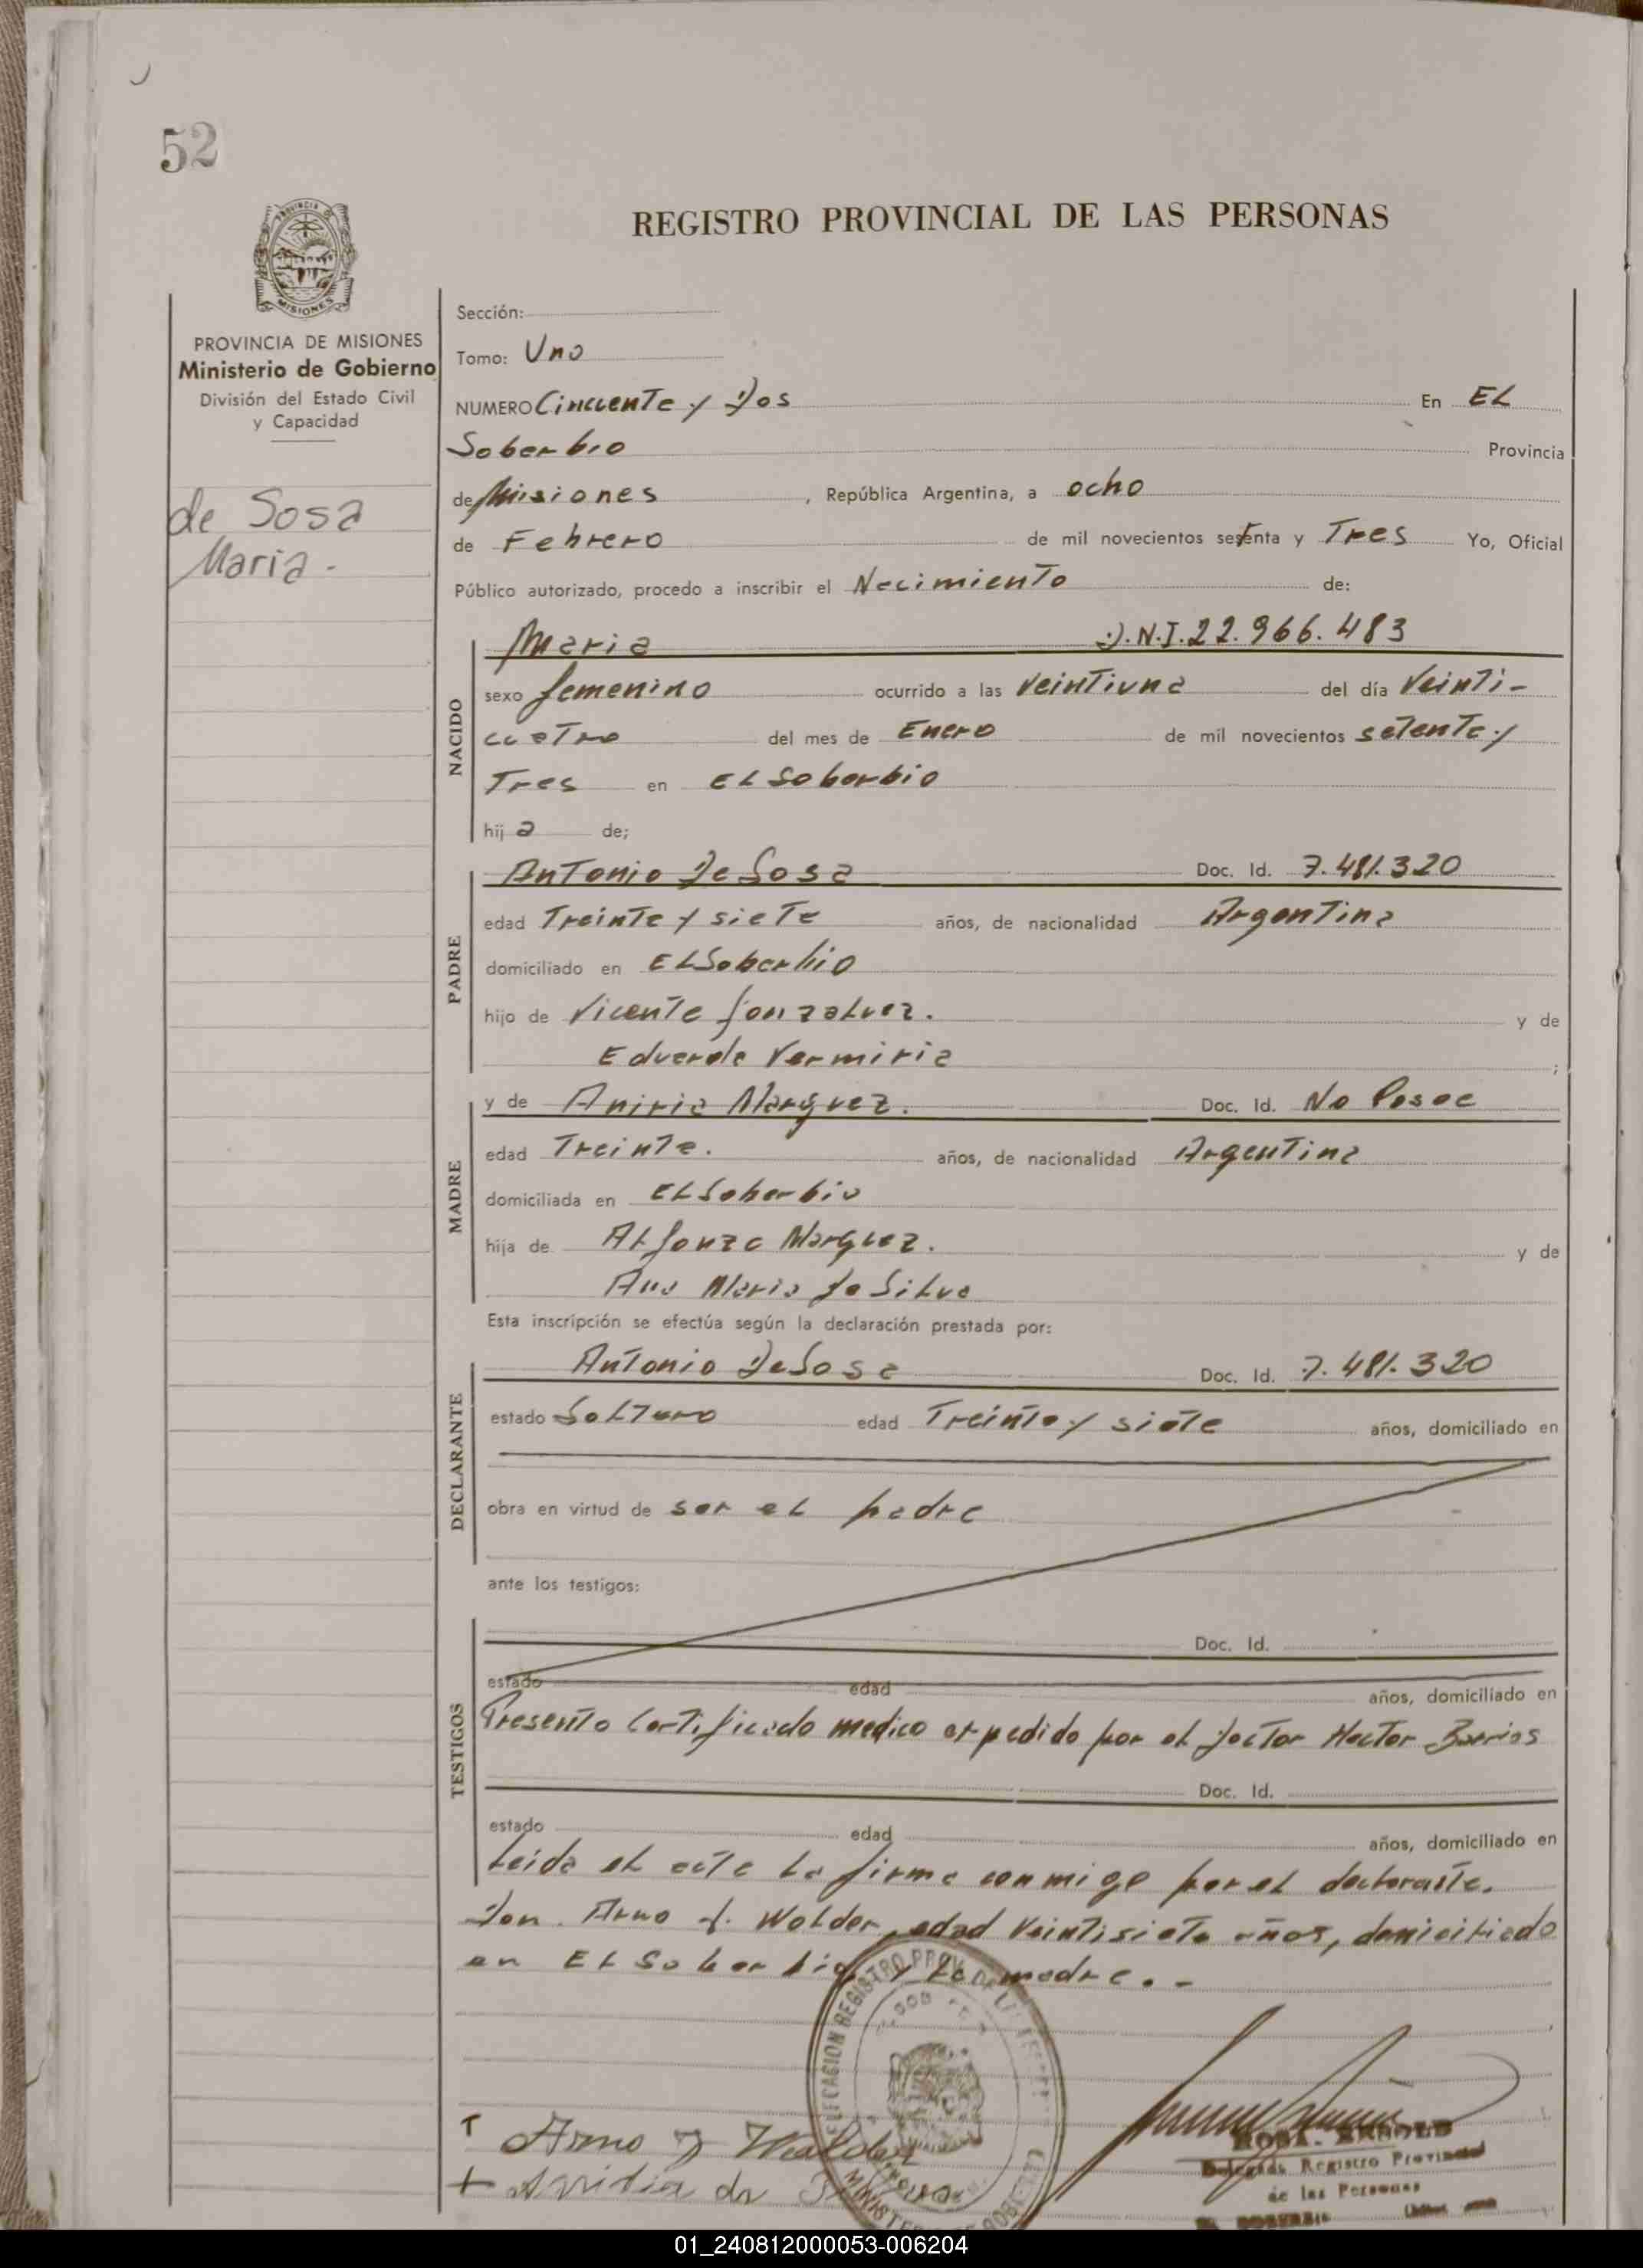 52
REGISTRO PROVINCIAL DE LAS PERSONAS
PROVINCIA DE MISIONES
Ministerio de Gobierno
División del Estado Civil
y Capacidad
de Sosa
Maria -
Sección:
Tomo: Uno
NUMERO Cincuenta y Dos En EL
Soberbio Provincia
de Misiones, República Argentina, a ocho
de Febrero de mil novecientos setenta y Tres Yo, Oficial
Público autorizado, procedo a inscribir el Nacimiento de:
NACIDO
Maria D.N.I. 22.966.483
sexo femenino ocurrido a las veintiuna del día Veinti-
cuatro del mes de Enero de mil novecientos setenta y
Tres en EL Soberbio
hija de;
PADRE
Antonio De Sosa Doc. Id. 7.481.320
edad Treinta y siete años, de nacionalidad Argentina
domiciliado en EL Soberbio
hijo de Vicente Gonzalvez. y de
Eduarda ;
MADRE
y de Marquez. Doc. Id. No Posee
edad Treinta. años, de nacionalidad Argentina
domiciliada en EL Soberbio
hija de Alfonzo Marquez. y de
Ana Maria Da Silva
Esta inscripción se efectúa según la declaración prestada por:
DECLARANTE
Antonio De Sosa Doc. Id. 7.481.320
estado Soltero edad Treinta y siete años, domiciliado en
obra en virtud de ser el padre
ante los testigos:
TESTIGOS
Doc. Id.
estado edad años, domiciliado en
Presento Certificado medico expedido por el Doctor Hector Barrios
Doc. Id.
estado edad años, domiciliado en
Leida el acta La firma conmigo por el declarante.
Don. Arno J. Walder, edad Veintisiete años, domiciliado
en EL Soberbio y La madre. -
Arno J Walder
ROSA ARNOLD
Delegada Registro Provincial
de las Personas
EL SOBERBIO
01_240812000053-006204